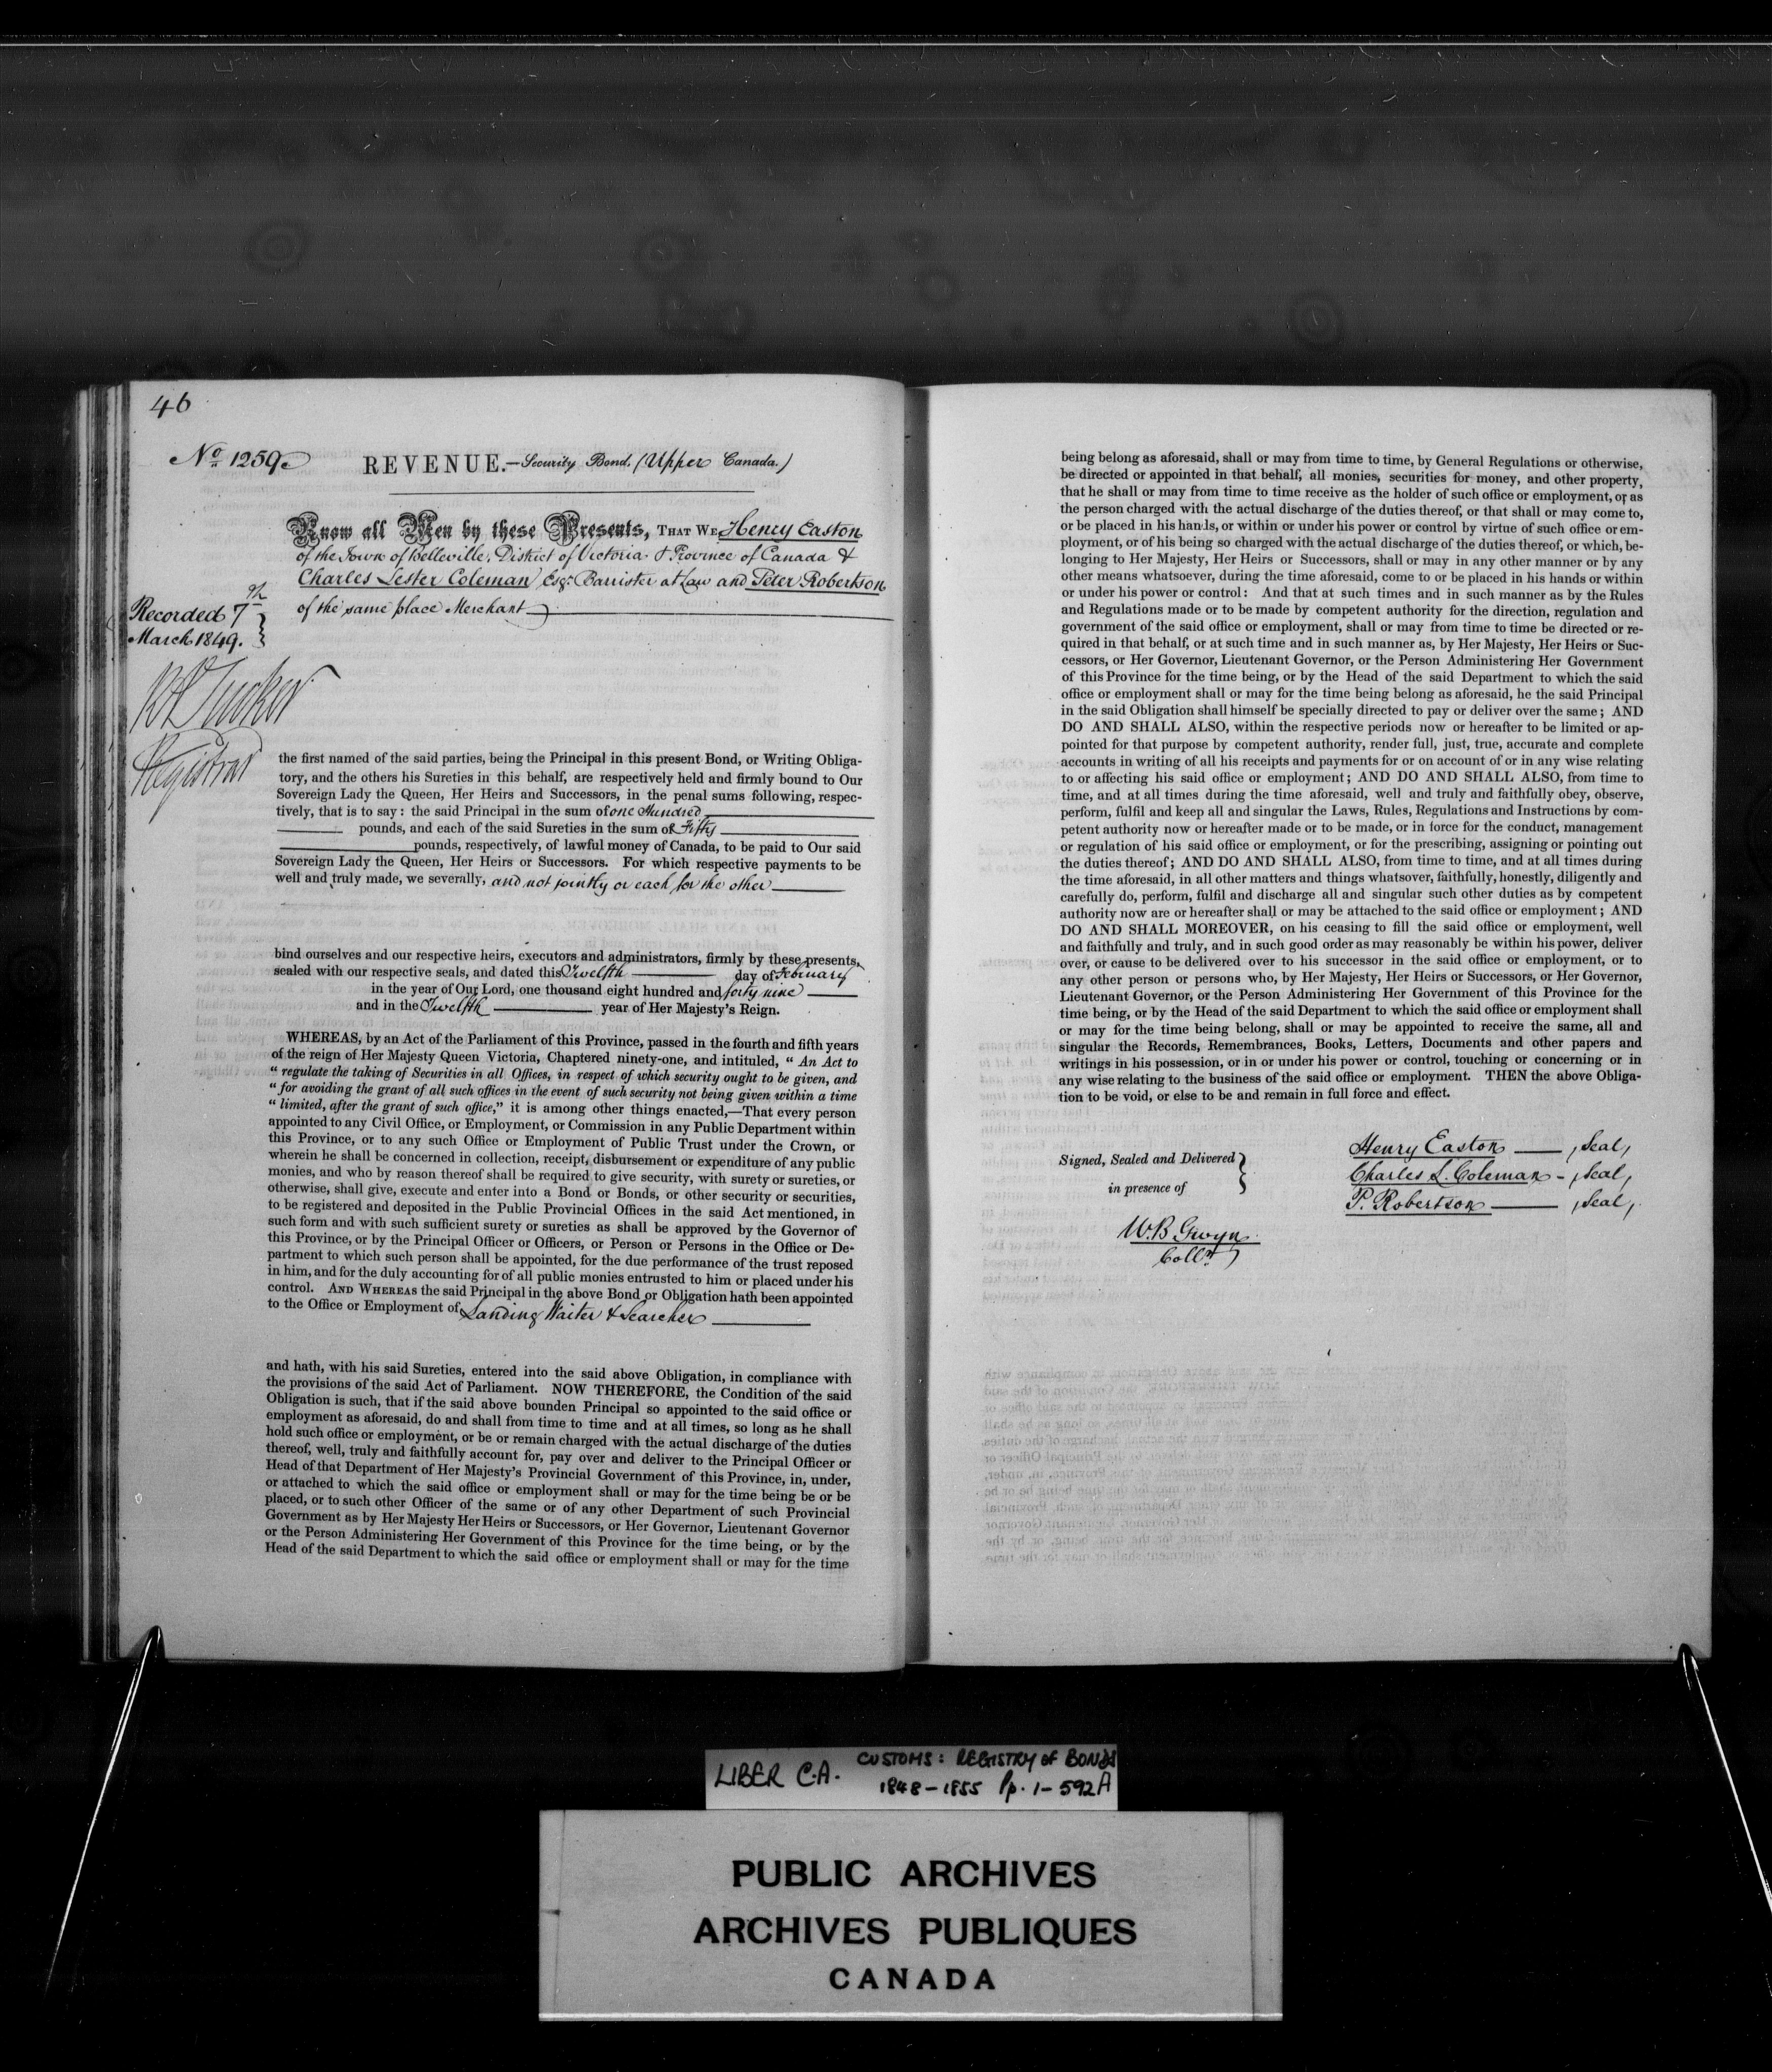 46
No 1259
REVENUE.—Security Bond. (Upper Canada.)
Know all Men by these Presents, THAT WE Henry Easton
of the Town of Belleville, District of Victoria & Province of Canada &
Charles Lester Coleman Esqr. Barrister at Law and Peter Robertson
of the same place Merchant
Recorded 7th
March 1849.
Tucker
Registrar
the first named of the said parties, being the Principal in this present Bond, or Writing Obliga-
tory, and the others his Sureties in this behalf, are respectively held and firmly bound to Our
Sovereign Lady the Queen, Her Heirs and Successors, in the penal sums following, respec-
tively, that is to say: the said Principal in the sum of one Hundred
pounds, and each of the said Sureties in the sum of Fifty
pounds, respectively, of lawful money of Canada, to be paid to Our said
Sovereign Lady the Queen, Her Heirs or Successors. For which respective payments to be
well and truly made, we severally, and not jointly or each for the other
bind ourselves and our respective heirs, executors and administrators, firmly by these presents,
sealed with our respective seals, and dated this Twelfth day of February
in the year of Our Lord, one thousand eight hundred and forty nine
and in the Twelfth year of Her Majesty's Reign.
WHEREAS, by an Act of the Parliament of this Province, passed in the fourth and fifth years
of the reign of Her Majesty Queen Victoria, Chaptered ninety-one, and intituled, “ An Act to
“ regulate the taking of Securities in all Offices, in respect of which security ought to be given, and
“ for avoiding the grant of all such offices in the event of such security not being given within a time
“ limited, after the grant of such office,” it is among other things enacted,—That every person
appointed to any Civil Office, or Employment, or Commission in any Public Department within
this Province, or to any such Office or Employment of Public Trust under the Crown, or
wherein he shall be concerned in collection, receipt, disbursement or expenditure of any public
monies, and who by reason thereof shall be required to give security, with surety or sureties, or
otherwise, shall give, execute and enter into a Bond or Bonds, or other security or securities,
to be registered and deposited in the Public Provincial Offices in the said Act mentioned, in
such form and with such sufficient surety or sureties as shall be approved by the Governor of
this Province, or by the Principal Officer or Officers, or Person or Persons in the Office or De-
partment to which such person shall be appointed, for the due performance of the trust reposed
in him, and for the duly accounting for of all public monies entrusted to him or placed under his
control. AND WHEREAS the said Principal in the above Bond or Obligation hath been appointed
to the Office or Employment of Landing Waiter & Searcher
and hath, with his said Sureties, entered into the said above Obligation, in compliance with
the provisions of the said Act of Parliament. NOW THEREFORE, the Condition of the said
Obligation is such, that if the said above bounden Principal so appointed to the said office or
employment as aforesaid, do and shall from time to time and at all times, so long as he shall
hold such office or employment, or be or remain charged with the actual discharge of the duties
thereof, well, truly and faithfully account for, pay over and deliver to the Principal Officer or
Head of that Department of Her Majesty's Provincial Government of this Province, in, under,
or attached to which the said office or employment shall or may for the time being be or be
placed, or to such other Officer of the same or of any other Department of such Provincial
Government as by Her Majesty Her Heirs or Successors, or Her Governor, Lieutenant Governor
or the Person Administering Her Government of this Province for the time being, or by the
Head of the said Department to which the said office or employment shall or may for the time
being belong as aforesaid, shall or may from time to time, by General Regulations or otherwise,
be directed or appointed in that behalf, all monies, securities for money, and other property,
that he shall or may from time to time receive as the holder of such office or employment, or as
the person charged with the actual discharge of the duties thereof, or that shall or may come to,
or be placed in his hands, or within or under his power or control by virtue of such office or em-
ployment, or of his being so charged with the actual discharge of the duties thereof, or which, be-
longing to Her Majesty, Her Heirs or Successors, shall or may in any other manner or by any
other means whatsoever, during the time aforesaid, come to or be placed in his hands or within
or under his power or control: And that at such times and in such manner as by the Rules
and Regulations made or to be made by competent authority for the direction, regulation and
government of the said office or employment, shall or may from time to time be directed or re-
quired in that behalf, or at such time and in such manner as, by Her Majesty, Her Heirs or Suc-
cessors, or Her Governor, Lieutenant Governor, or the Person Administering Her Government
of this Province for the time being, or by the Head of the said Department to which the said
office or employment shall or may for the time being belong as aforesaid, he the said Principal
in the said Obligation shall himself be specially directed to pay or deliver over the same; AND
DO AND SHALL ALSO, within the respective periods now or hereafter to be limited or ap-
pointed for that purpose by competent authority, render full, just, true, accurate and complete
accounts in writing of all his receipts and payments for or on account of or in any wise relating
to or affecting his said office or employment; AND DO AND SHALL ALSO, from time to
time, and at all times during the time aforesaid, well and truly and faithfully obey, observe,
perform, fulfil and keep all and singular the Laws, Rules, Regulations and Instructions by com-
petent authority now or hereafter made or to be made, or in force for the conduct, management
or regulation of his said office or employment, or for the prescribing, assigning or pointing out
the duties thereof; AND DO AND SHALL ALSO, from time to time, and at all times during
the time aforesaid, in all other matters and things whatsover, faithfully, honestly, diligently and
carefully do, perform, fulfil and discharge all and singular such other duties as by competent
authority now are or hereafter shall or may be attached to the said office or employment; AND
DO AND SHALL MOREOVER, on his ceasing to fill the said office or employment, well
and faithfully and truly, and in such good order as may reasonably be within his power, deliver
over, or cause to be delivered over to his successor in the said office or employment, or to
any other person or persons who, by Her Majesty, Her Heirs or Successors, or Her Governor,
Lieutenant Governor, or the Person Administering Her Government of this Province for the
time being, or by the Head of the said Department to which the said office or employment shall
or may for the time being belong, shall or may be appointed to receive the same, all and
singular the Records, Remembrances, Books, Letters, Documents and other papers and
writings in his possession, or in or under his power or control, touching or concerning or in
any wise relating to the business of the said office or employment. THEN the above Obliga-
tion to be void, or else to be and remain in full force and effect.
Signed, Sealed and Delivered
in presence of
W.B Gwyn
Collr
Henry Easton , Seal,
Charles L. Coleman - , Seal,
P. Robertson , Seal,
LIBER C.A. CUSTOMS: REGISTRY OF BONDS
1848-1855 Pp. 1-592A
PUBLIC ARCHIVES
ARCHIVES PUBLIQUES
CANADA